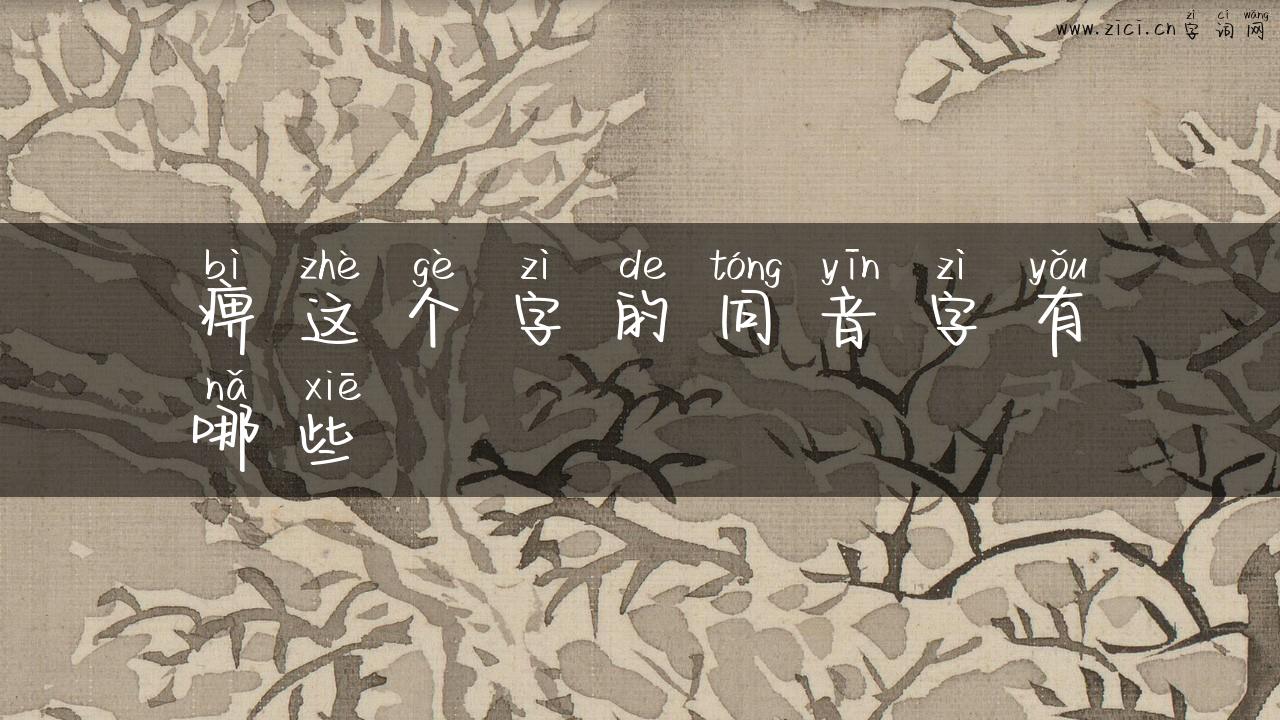 zì cí wǎng
www.zici.cn字词网
bì zhè gè zì de tóng yīn zì yǒu
痹这个字的同音字有
nǎ xiē
哪些